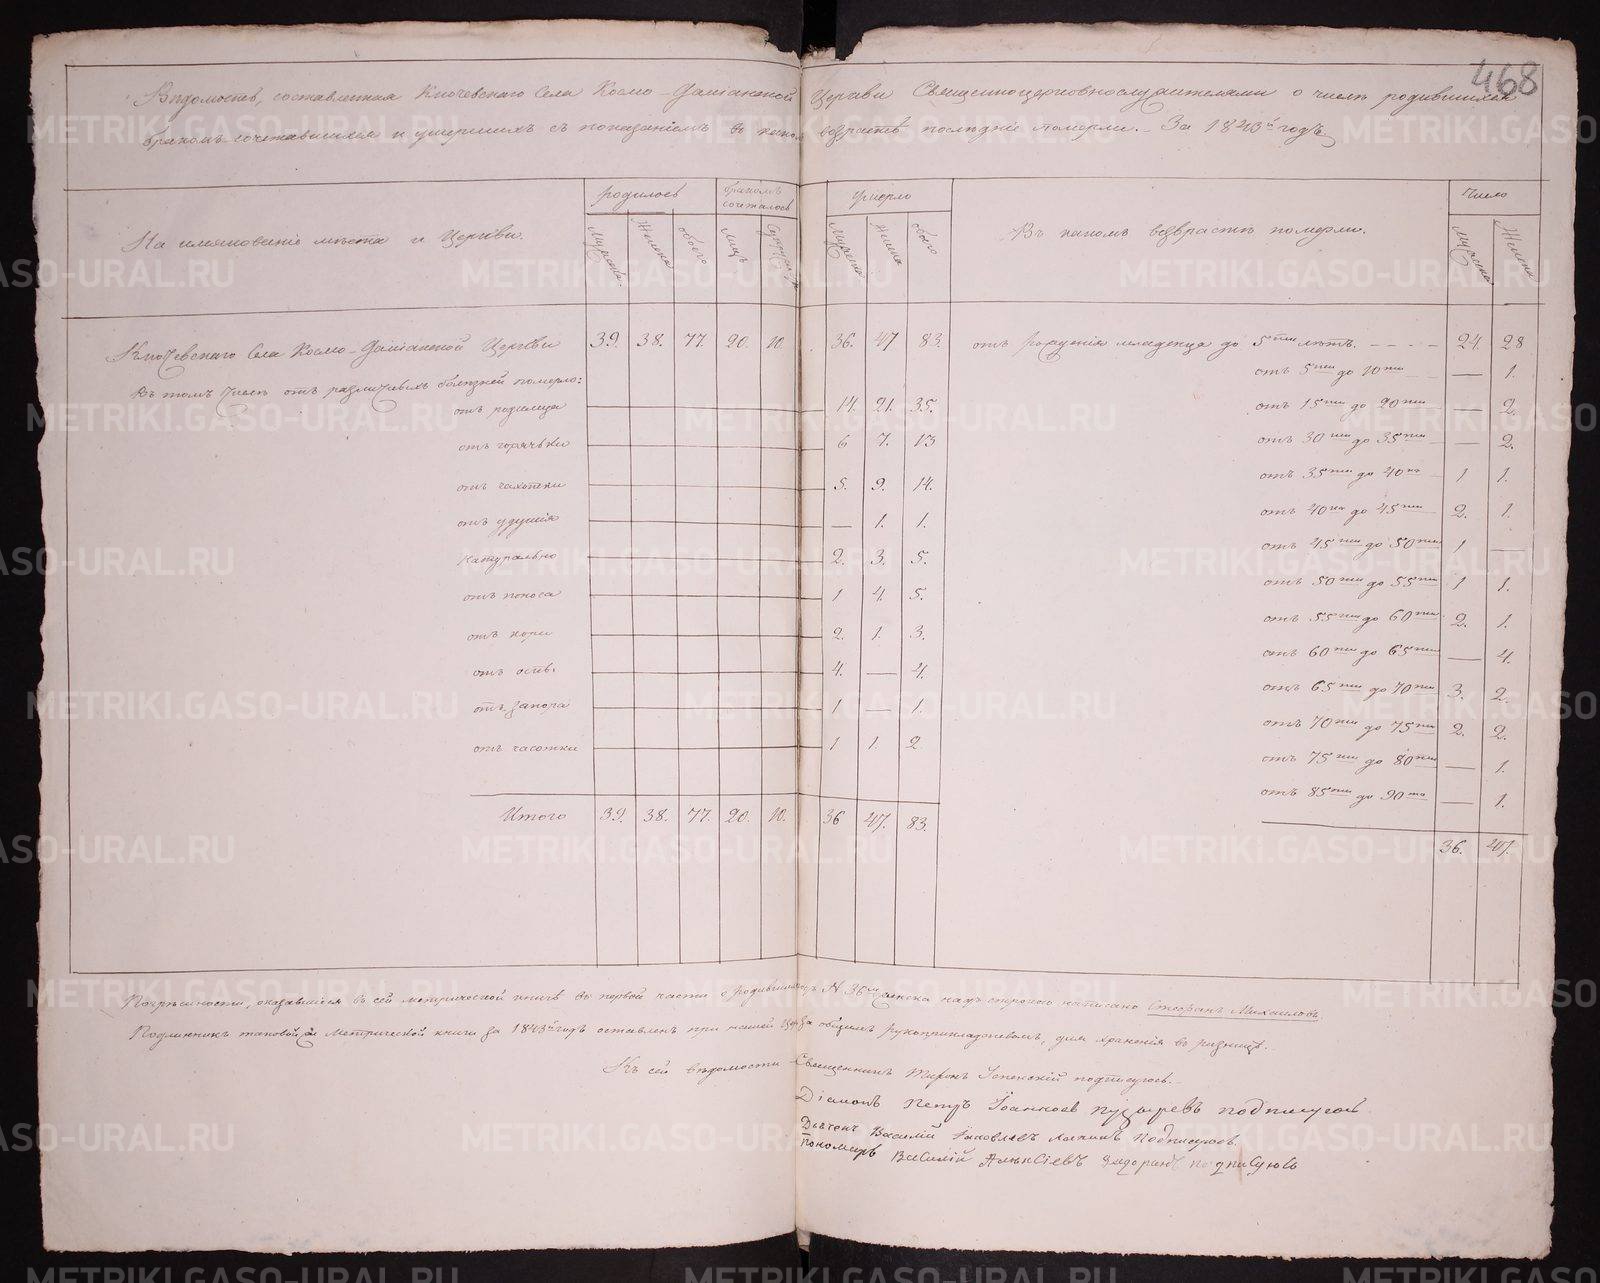 468
Вѣдомость, составленная Ключевскаго Села Космо-Даміанской Церкви Священноцерковнослужителями о числѣ родившихся
бракомъ сочетавшихся и умершихъ съ показаніемъ въ какомъ возрастѣ послѣдніе померли. За 1843й годъ
На имянованіе мѣста и Церкви.
родилось
бракомъ сочеталось
умерло
Въ какомъ возврастѣ померли.
Число
Мужеска
Женска
обоего
лицъ
Мужеска
Женска
обоего
Мужеска
Женска
Ключевскаго Села Космо-Даміанской Церкви 39. 38. 77. 20. 10. 36. 47 83. отъ рожденія младенца до 5ти лѣтъ. 24. 28
отъ 5ти до 10ти — 1.
Въ томъ числѣ отъ различныхъ болѣзней померло:
отъ родимца 14. 21. 35. отъ 15ти до 20ти — 2.
отъ горячьки 6 7. 13 отъ 30ти до 35ти — 2.
отъ чахотки 5. 9. 14. отъ 35ти до 40ка 1 1.
отъ удушія — 1. 1. отъ 40ка до 45ти 2. 1.
натурально 2. 3. 5. отъ 45ти до 50ти 1 —
отъ поноса 1 4. 5. отъ 50ти до 55ти 1 1.
отъ кори 2. 1. 3. отъ 55ти до 60ти 2. 1.
отъ оспы. 4. — 4. отъ 60ти до 65ти — 4.
отъ запора 1 — 1. отъ 65ти до 70ти 3. 2.
отъ часотки 1 1. 2 отъ 70ти до 75ти 2. 2.
отъ 75ти до 80ти — 1.
отъ 85ти до 90та — 1.
Итого 39. 38. 77. 20. 10. 36 47. 83.
36. 47.
Погрѣшности, оказавшіеся въ сей метрической книгѣ въ первой части о родившихся N 36 надъ строкою написано Стефанъ Михаиловъ
Подлинникъ таковой метрической книги за 1843й годъ оставленъ при нашей за общимъ рукоприкладсвомъ, для храненія въ ризницѣ.
Къ сей вѣдомости Священникъ Миронъ Успенскій подписуюсь.
Діаконъ Петръ Іоанновъ Пузыревъ подписуюсь
Дьячекъ Василій Іаковлевъ Лапинъ Подписуюсь.
Пономарь Василій Алексіевъ подписуюсь
METRIKI.GASO-URAL.RU